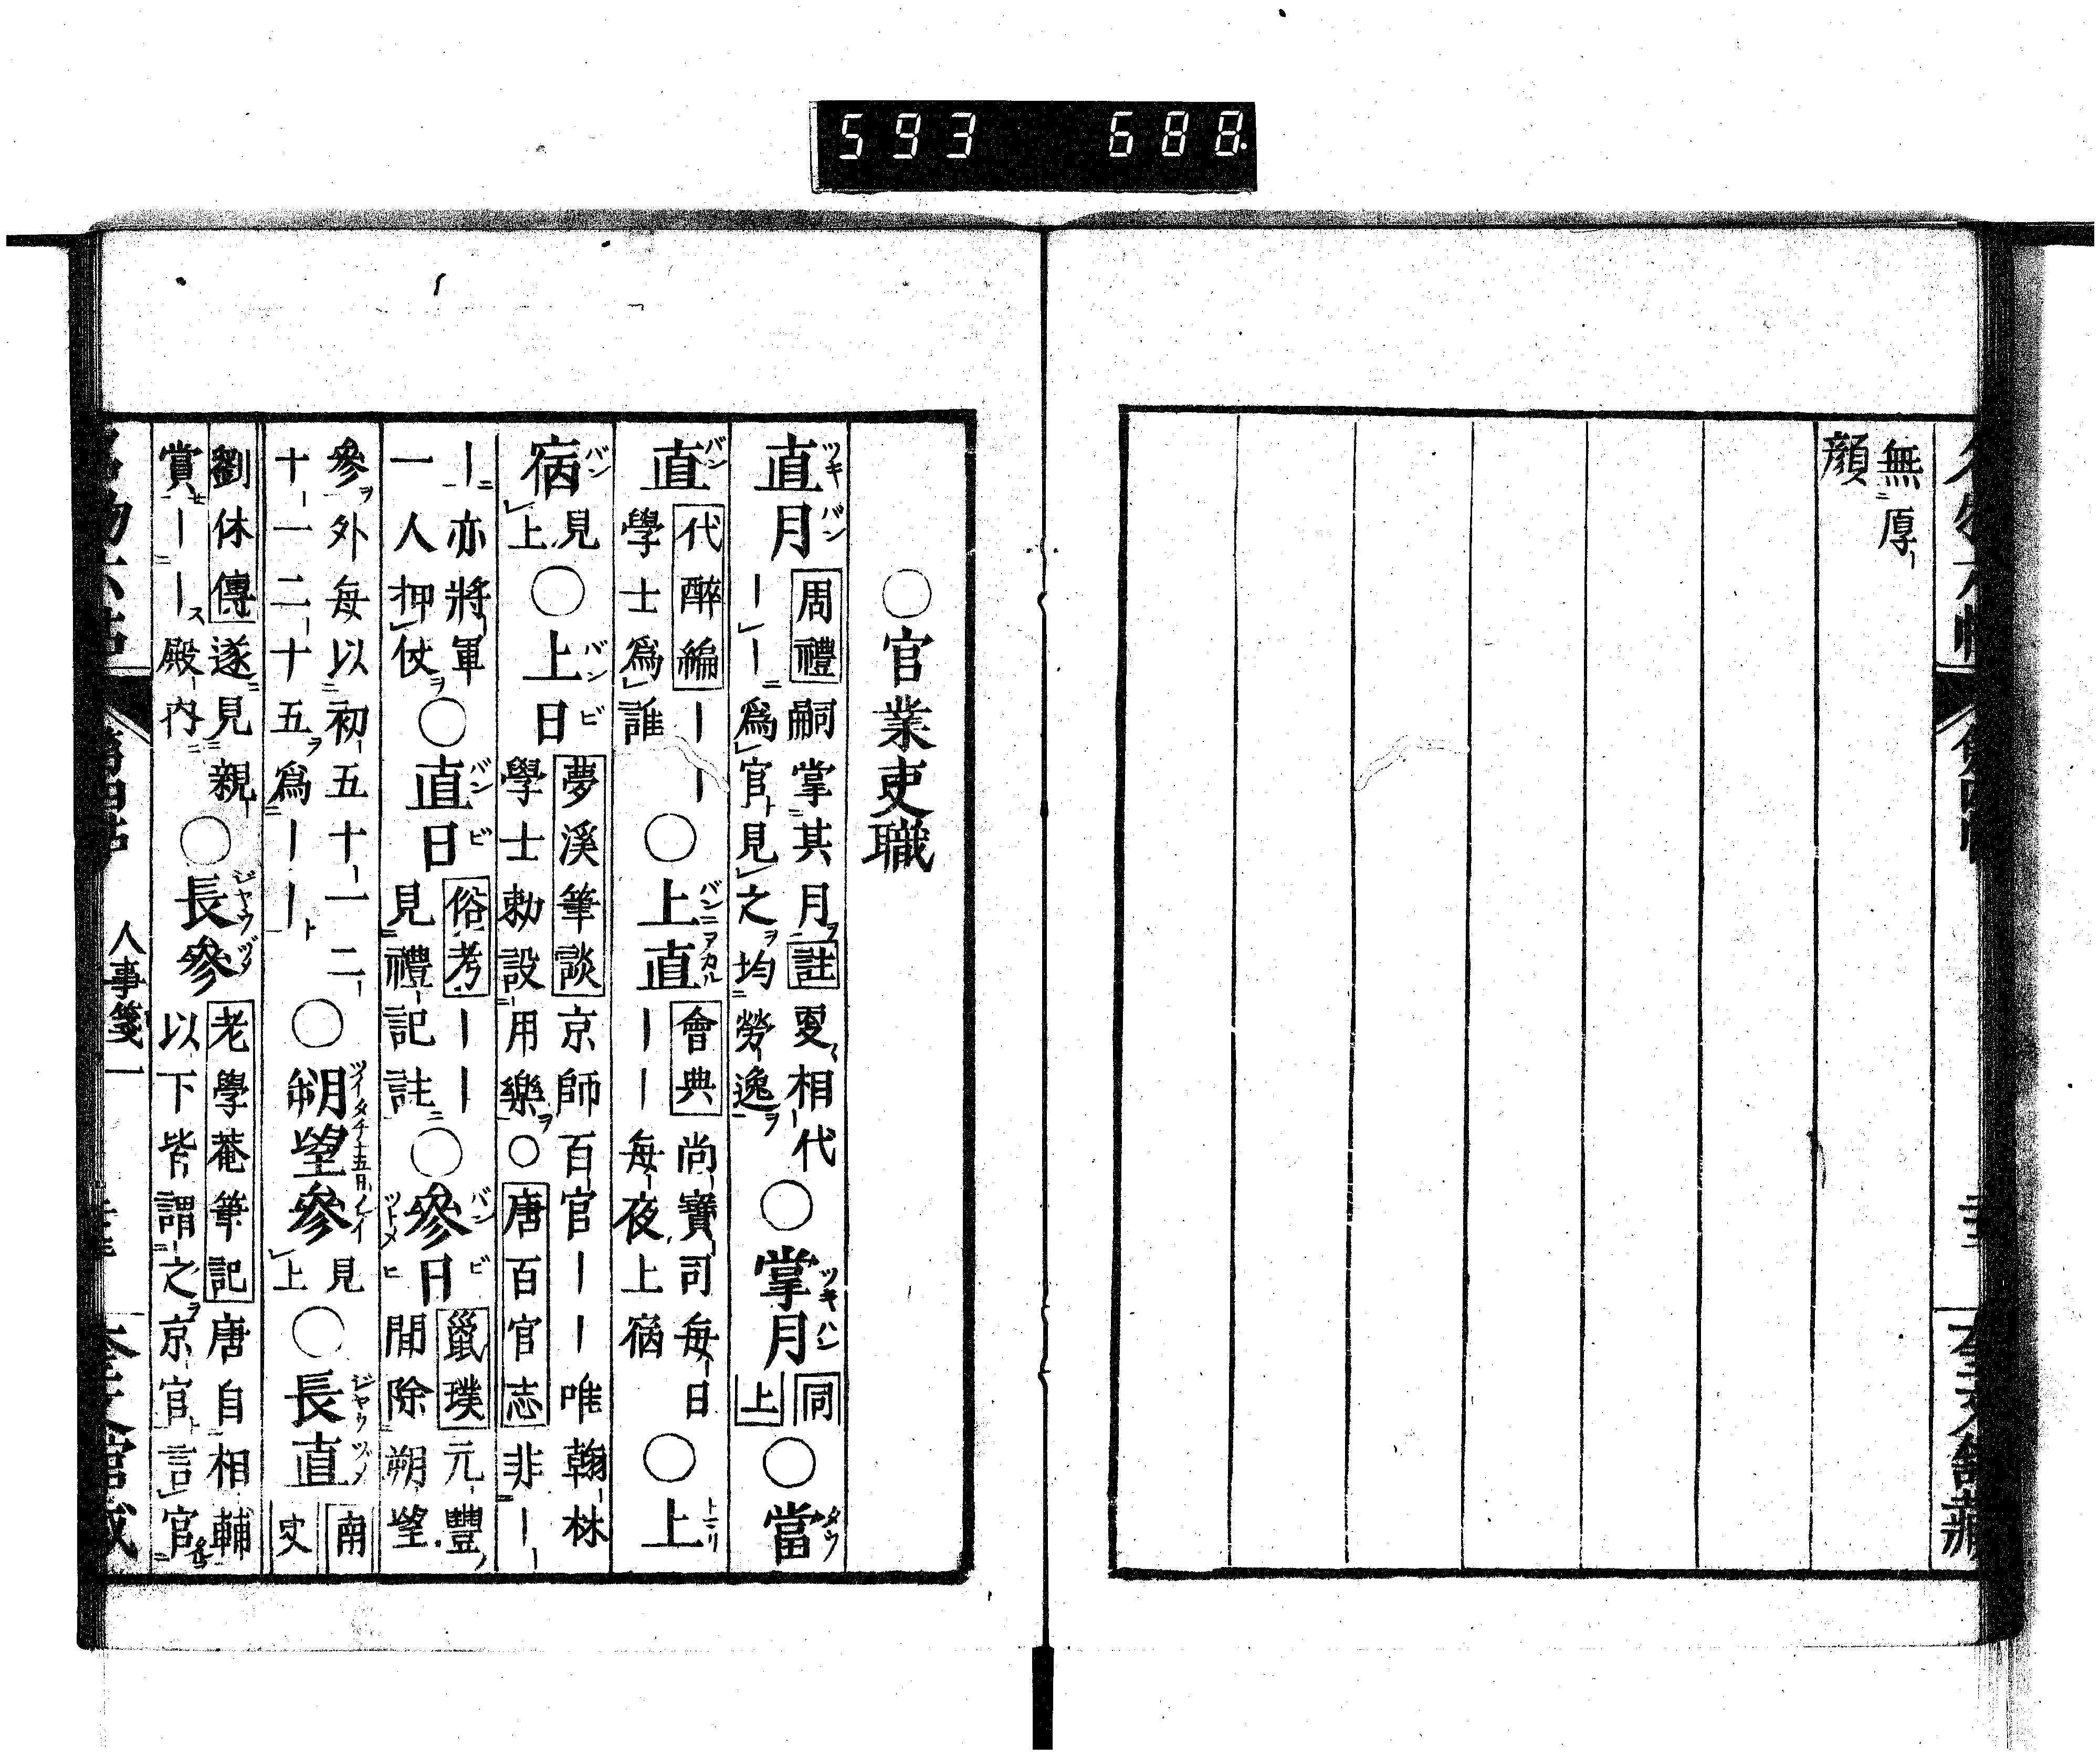 593 688
無厚
顔
○官業吏職
直月 周禮 嗣掌其月 註 更相代
｜｜爲官見之均勞逸 ○掌月 同上 ○當
直 代醉編 ｜｜
學士爲誰 ○上直 會典 尚寶司每日
｜｜每夜上宿 ○上
宿 見上 ○上日 夢溪筆談 京師百官｜｜唯翰林
學士勅設用樂○唐百官志 非｜
｜亦將軍
一人押仗 ○直日 俗考 ｜｜
見禮記註 ○參日 甕璞 元豐
間除朔望
參外每以初五十一二
十一二十五爲｜｜ ○朔望參 見上 ○長直 南史
劉休傳 遂見親
賞｜｜殿内 ○長參 老學菴筆記 唐自相輔
以下皆謂之京官言官
人事箋一